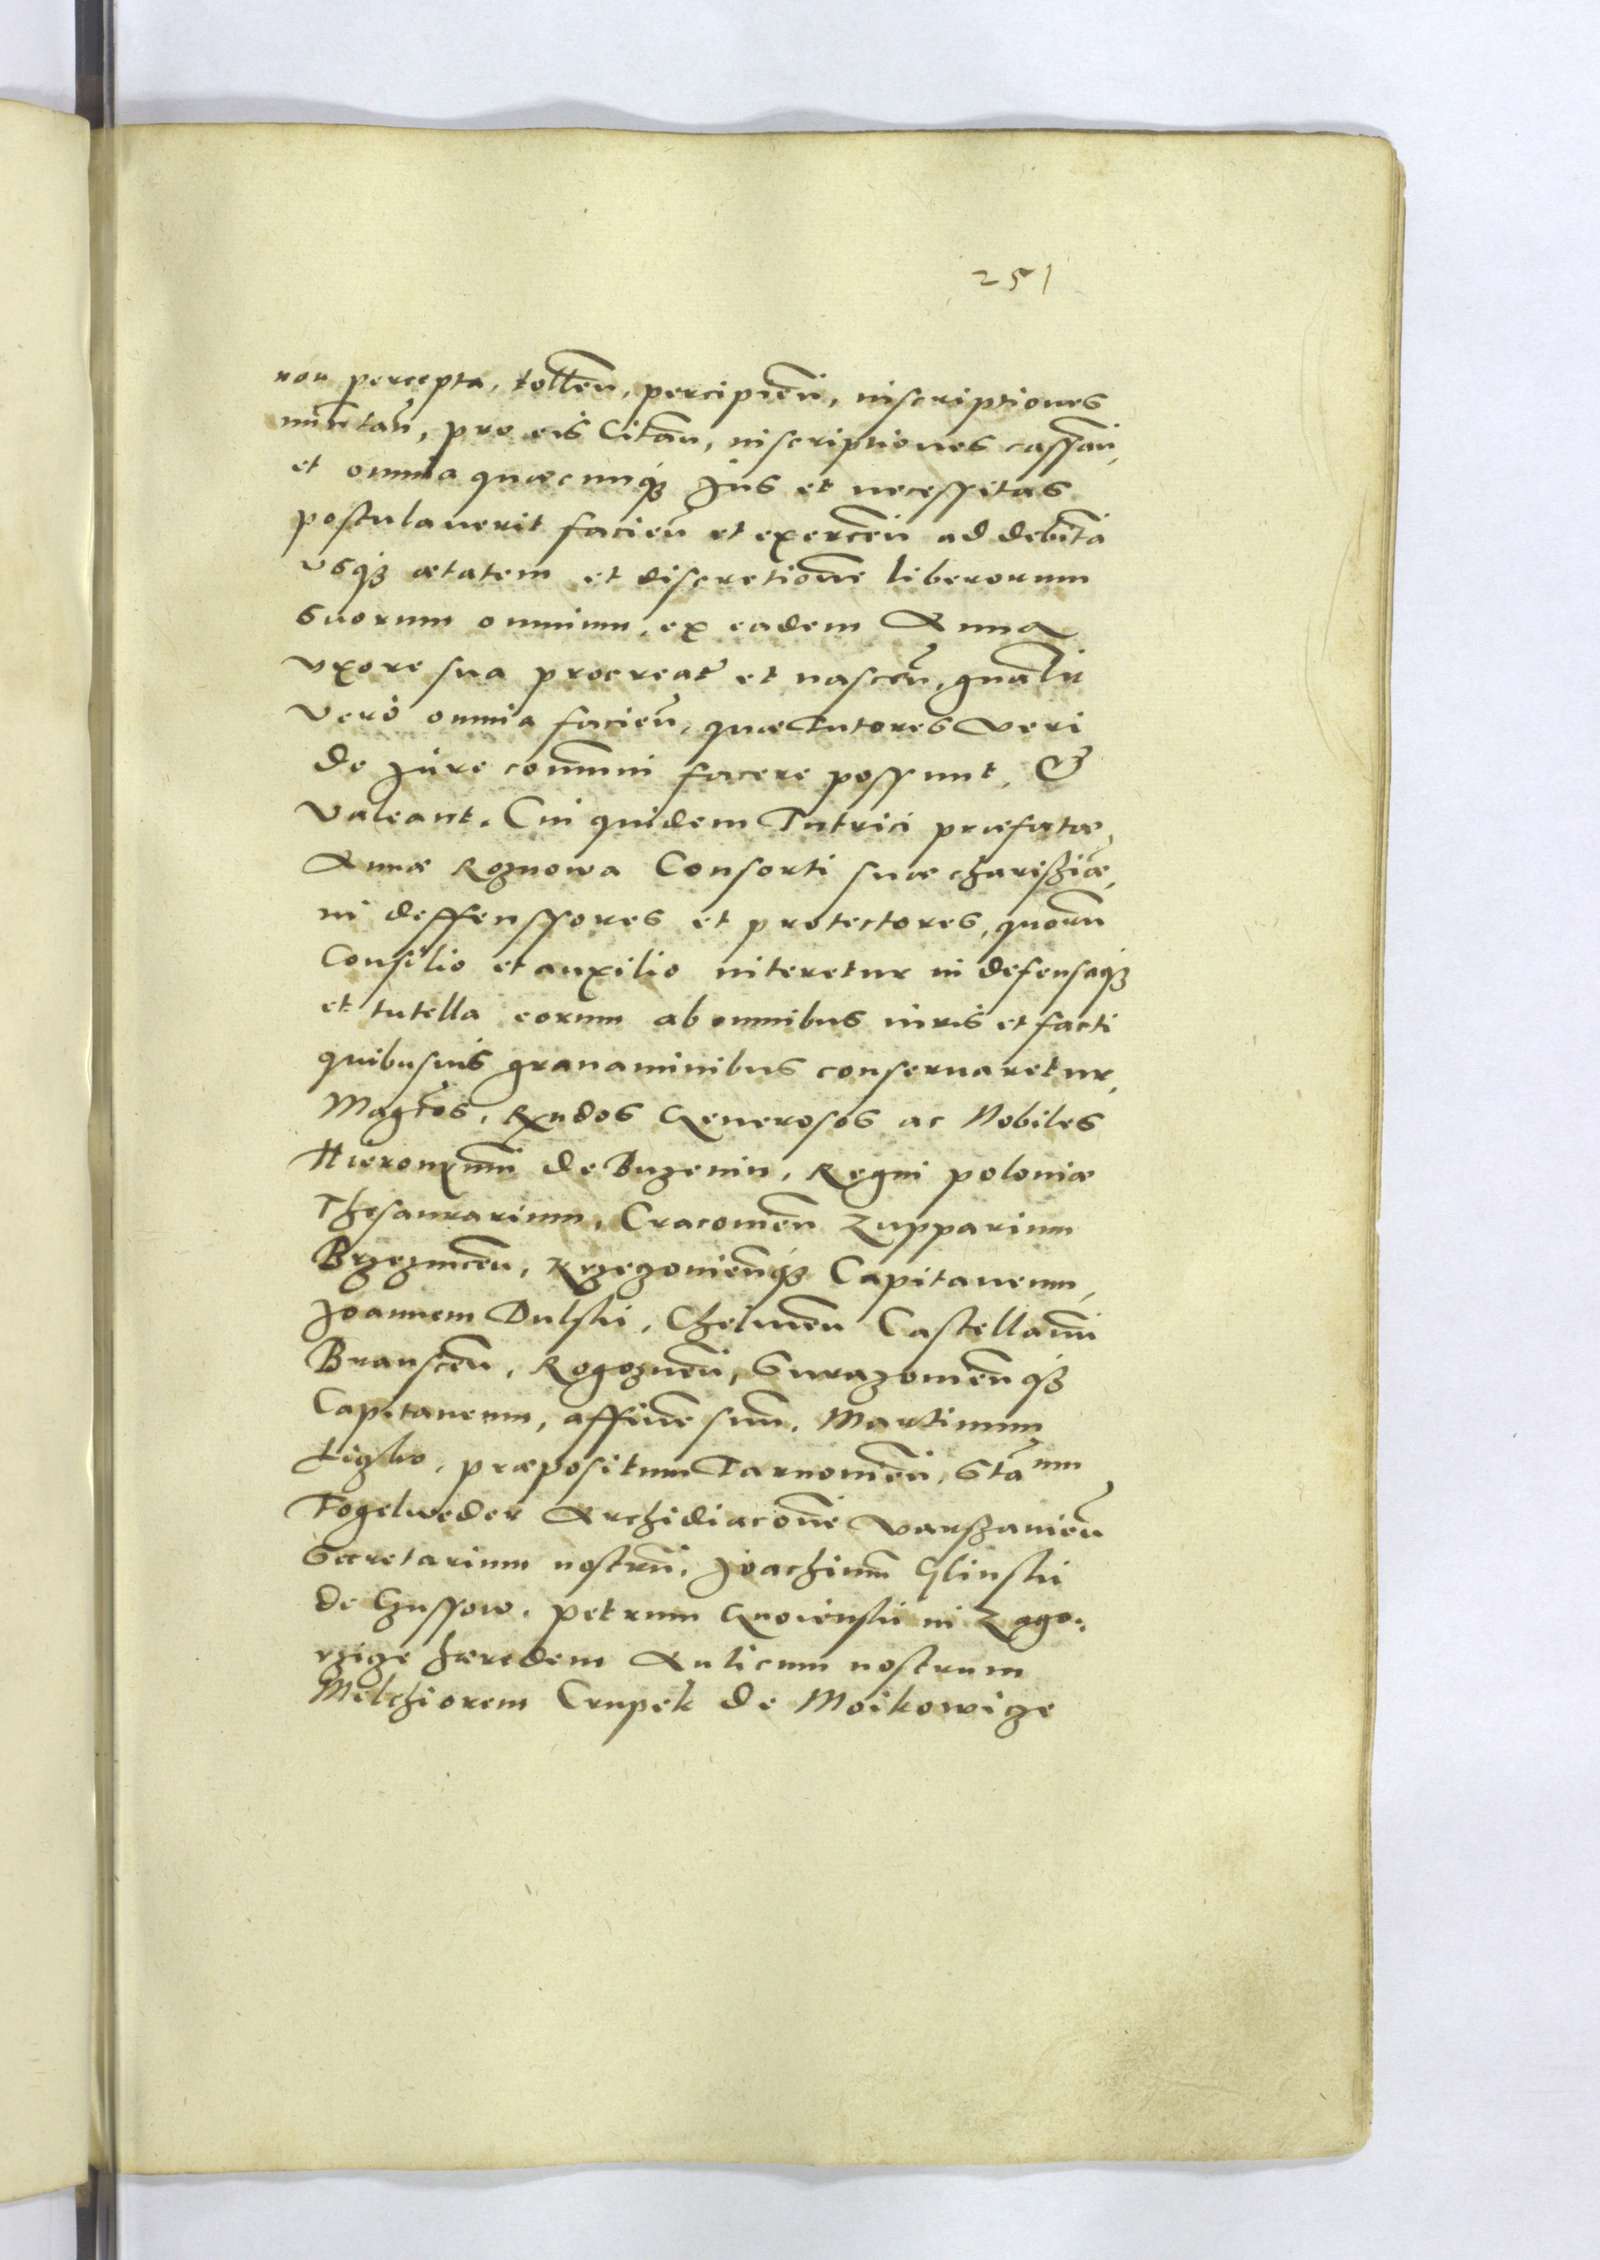 251
non percepta, tollen̄, percipien̄, inscriptiones
pro eis Citan̄, inscriptiones cassan̄,
et omnia quæcunq₃ Jus et necessitas
postulauerit facien̄ et exercen̄ ad debitā
vsq₃ ætatem et discretionē liberorum
suorum omnium, ex eadem Anna
vxore sua procreat̄ et nascen̄, gnālit̄
verò omnia facien̄, quæ Tutores veri
de jure com̄uni facere possunt, &
valeant. Cui quidem Tutrici præfatæ,
Annæ Roznowa Consorti suæ charissīæ,
in deffenssores et protectores, quorū
Consilio et auxilio niteretur in defensaq₃
et tutella eorum ab omnibus iuris et facti
quibusuis grauaminibus conseruaretur,
Magcos, Rndos Generosos ac Nobiles
Hieronymū de Buzenin, Regni poloniæ
Thesaurarium, Cracouien̄ Zupparium
Brzeznicen̄, Krzeczouien̄q₃ Capitaneum,
Joannem Dulski, Chelmen̄ Castellanū
Branscen̄, Rogoznen̄, Surazouien̄q₃
Capitaneum, affinē suū, Martinum
præpositum Tarnouien̄, Stāum
Fogelweder Archidiaconē Varssauien̄
Secretarium nostrū, Joachimū Glinski
de petrum Gnoienski in Zago-
rzicze hæredem Aulicum nostrum
Melchiorem Crupek de Moikowicze